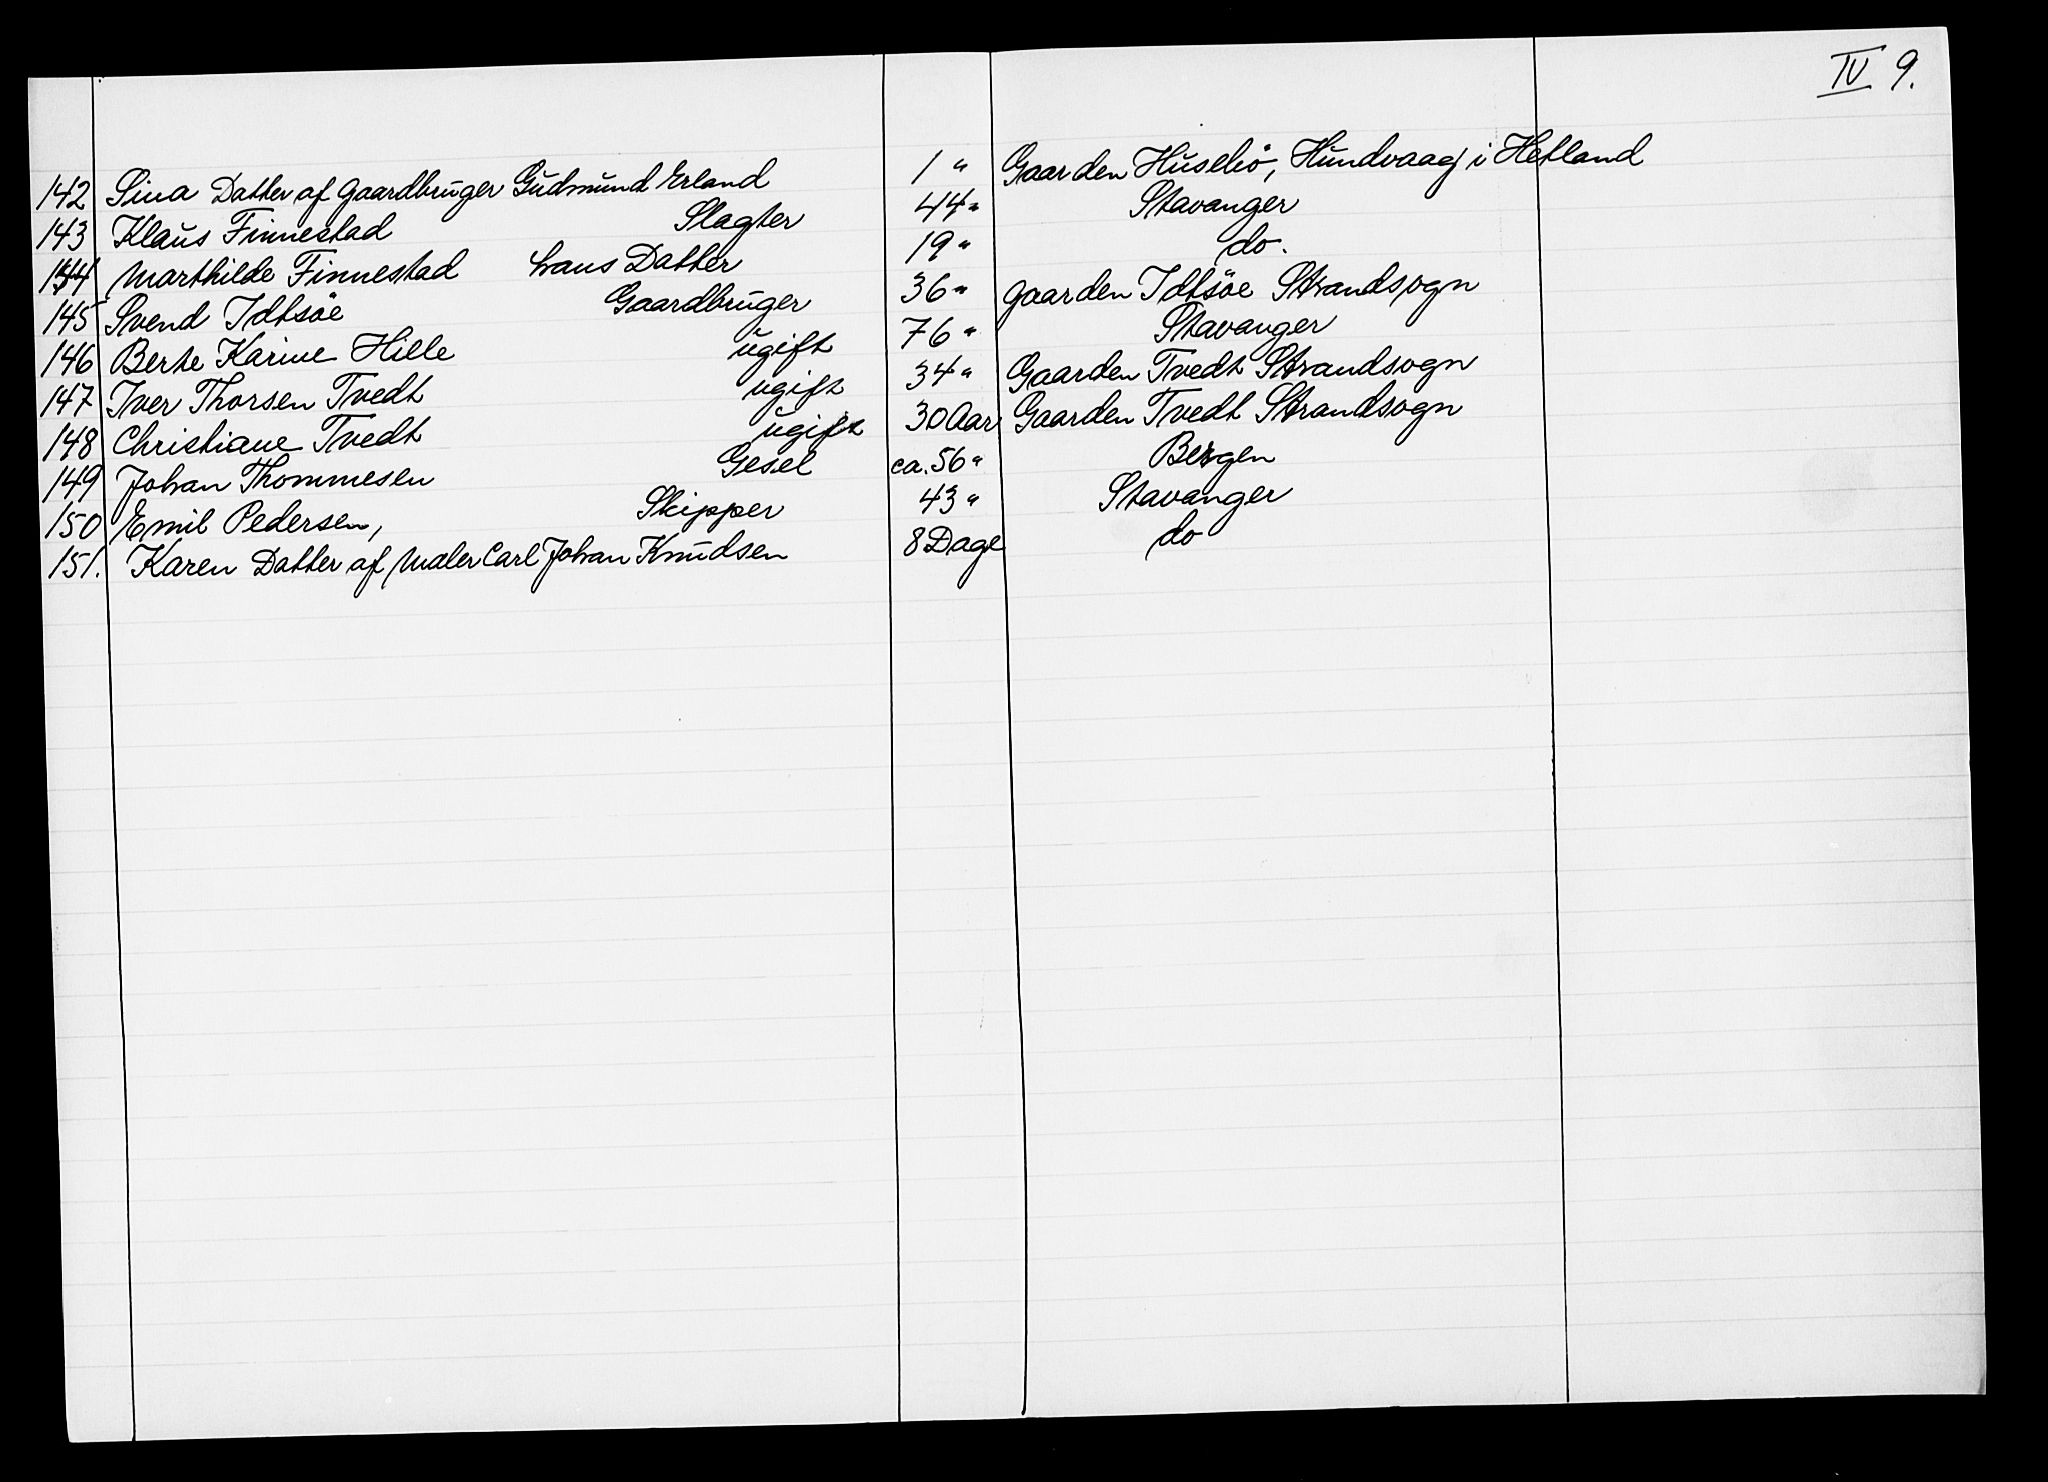 IV 9.
142 Sina Datter af Gaardbruger Gudmund Erland 1 " Gaarden Husebö, Hundvaag i Hetland
143 Klaus Finnestad Slagter 44 " Stavanger
144 Marthilde Finnestad hans Datter 19 " do.
145 Svend Idtsöe Gaardbruger 36 " Gaarden Idtsöe Strandsogn
146 Berte Karine Hille ugift 76 " Stavanger
147 Iver Thorsen Tvedt ugift 34 " Gaarden Tvedt Strandsogn
148 Christiane Tvedt ugift 30 Aar Gaarden Tvedt Strandsogn
149 Johan Thommesen Gesel ca. 56 " Bergen
150 Emil Pedersen, Skipper 43 " Stavanger
151. Karen Datter af Maler Carl Johan Knudsen 8 Dage do